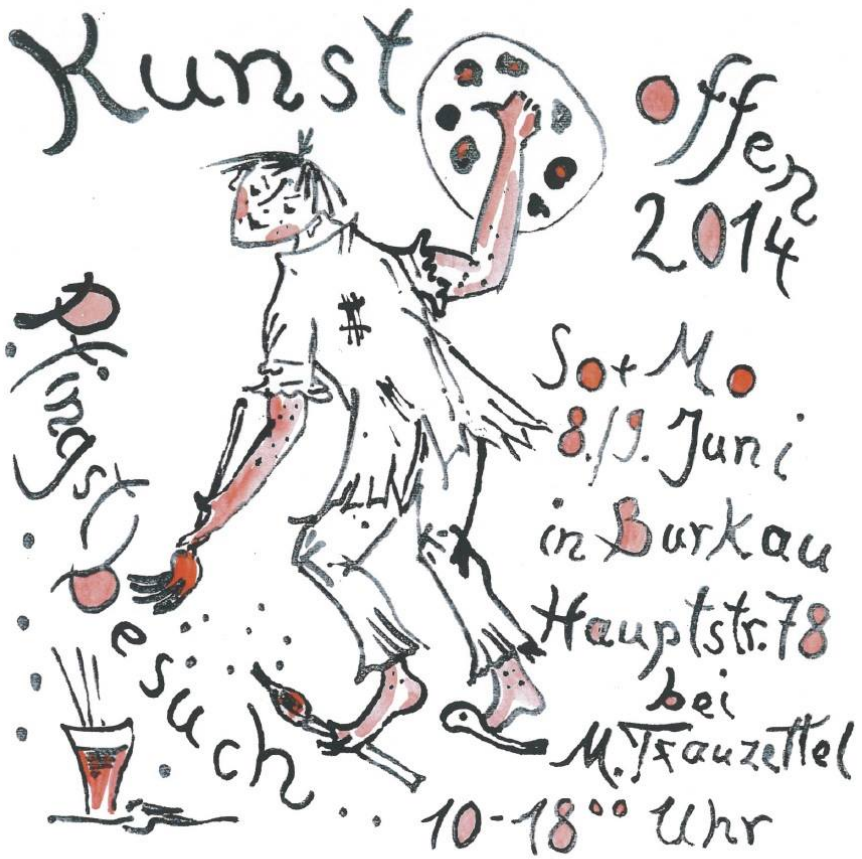 Kunst
offen
2014
Pfingstbesuch
So + Mo
8./9. Juni
in Burkau
Hauptstr. 78
bei
M. Trauzettel
10-18°° Uhr